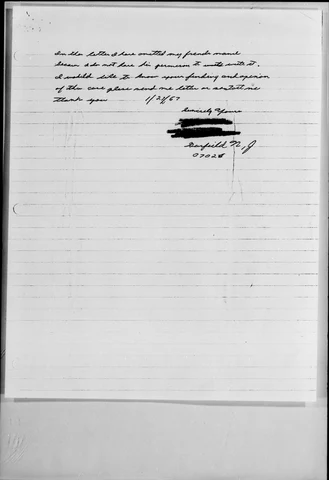 In this letter I have omitted my friends name
becaus I do not have his permission to write with it.
I would like to know your findings and opinion
of the case please send me letter or contact me
thank you 1/27/67
Sincerely Yours
Garfield N.J
07026